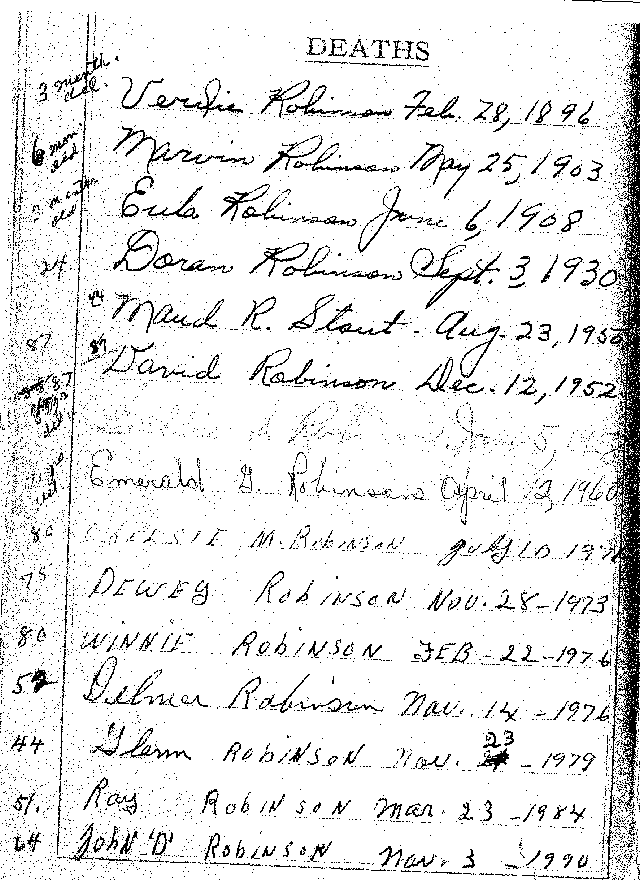 DEATHS
3 month old. Verdie Robinson Feb. 28, 1896
6 mon. old Marvin Robinson May 25, 1903
month old Eula Robinson June 6, 1908
24 Doran Robinson Sept. 3, 1930
44 Maud R. Stout - Aug. 23,
87 89 David Robinson Dec. 12, 1952
87 5,
Emerald G. Robinson April 1960
80 M. Robinson July 10
75 DEWEY RobINSON NOV. 28-1973
80 WINNIE RobINSON FEB-22-1976
Delmer Robinson Nov. 14 - 1976
44 Glenn ROBINSON Nov. 23 - 1979
51. Ray RobINSON Mar. 23 - 1984
64 John "D" RobINSON Nov. 3 - 1990